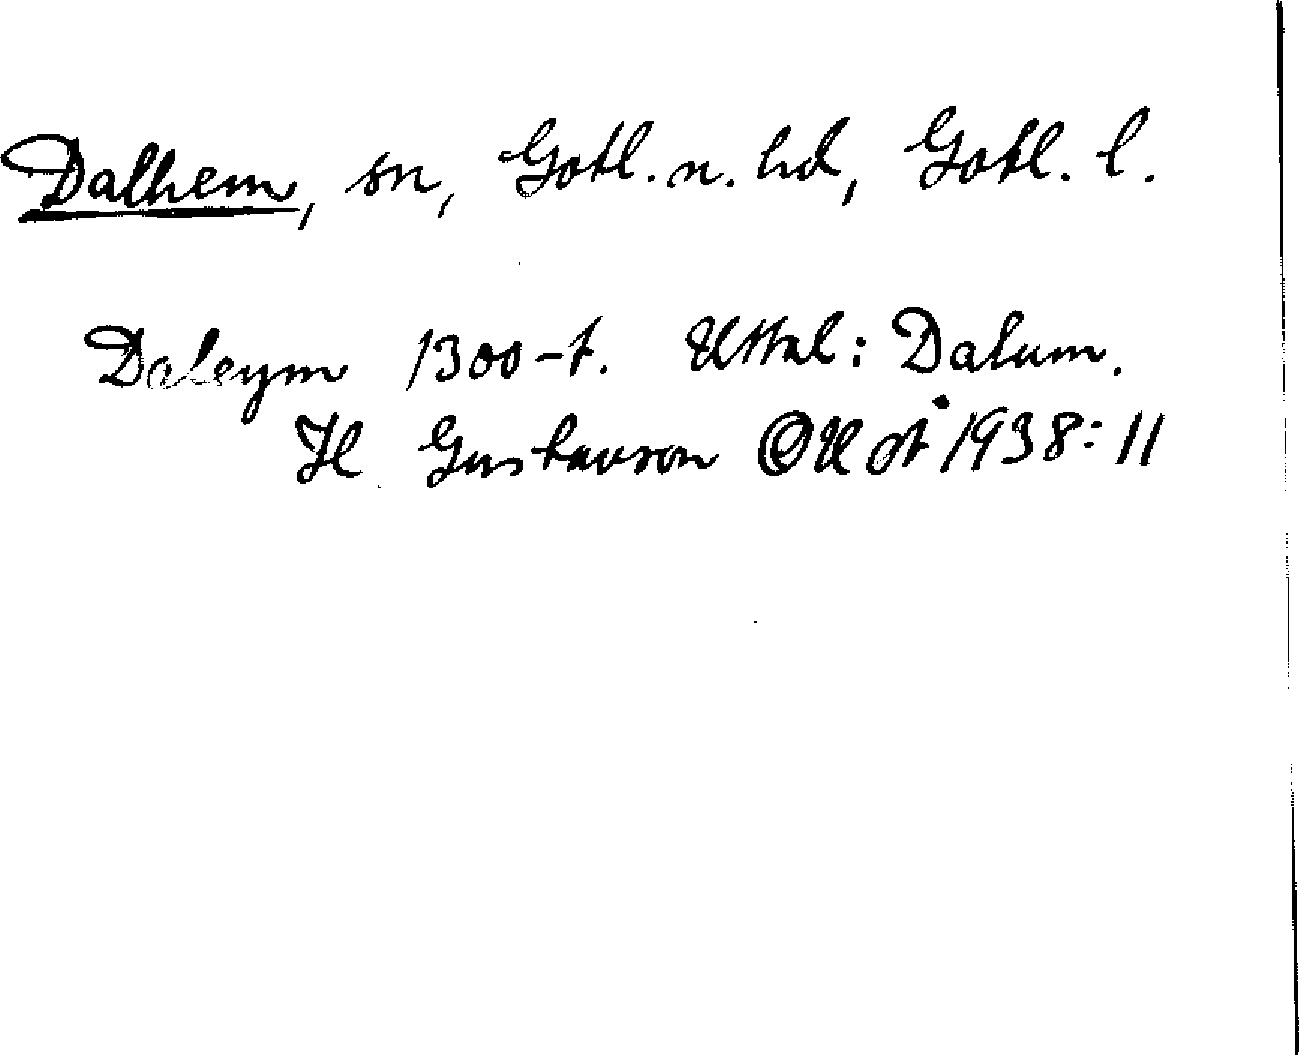 Dalhem, sn, Gotl. n. hd, Gotl. l.
Daleym 1300-t. Uttal: Dalum.
H Gustavson
1938: 11